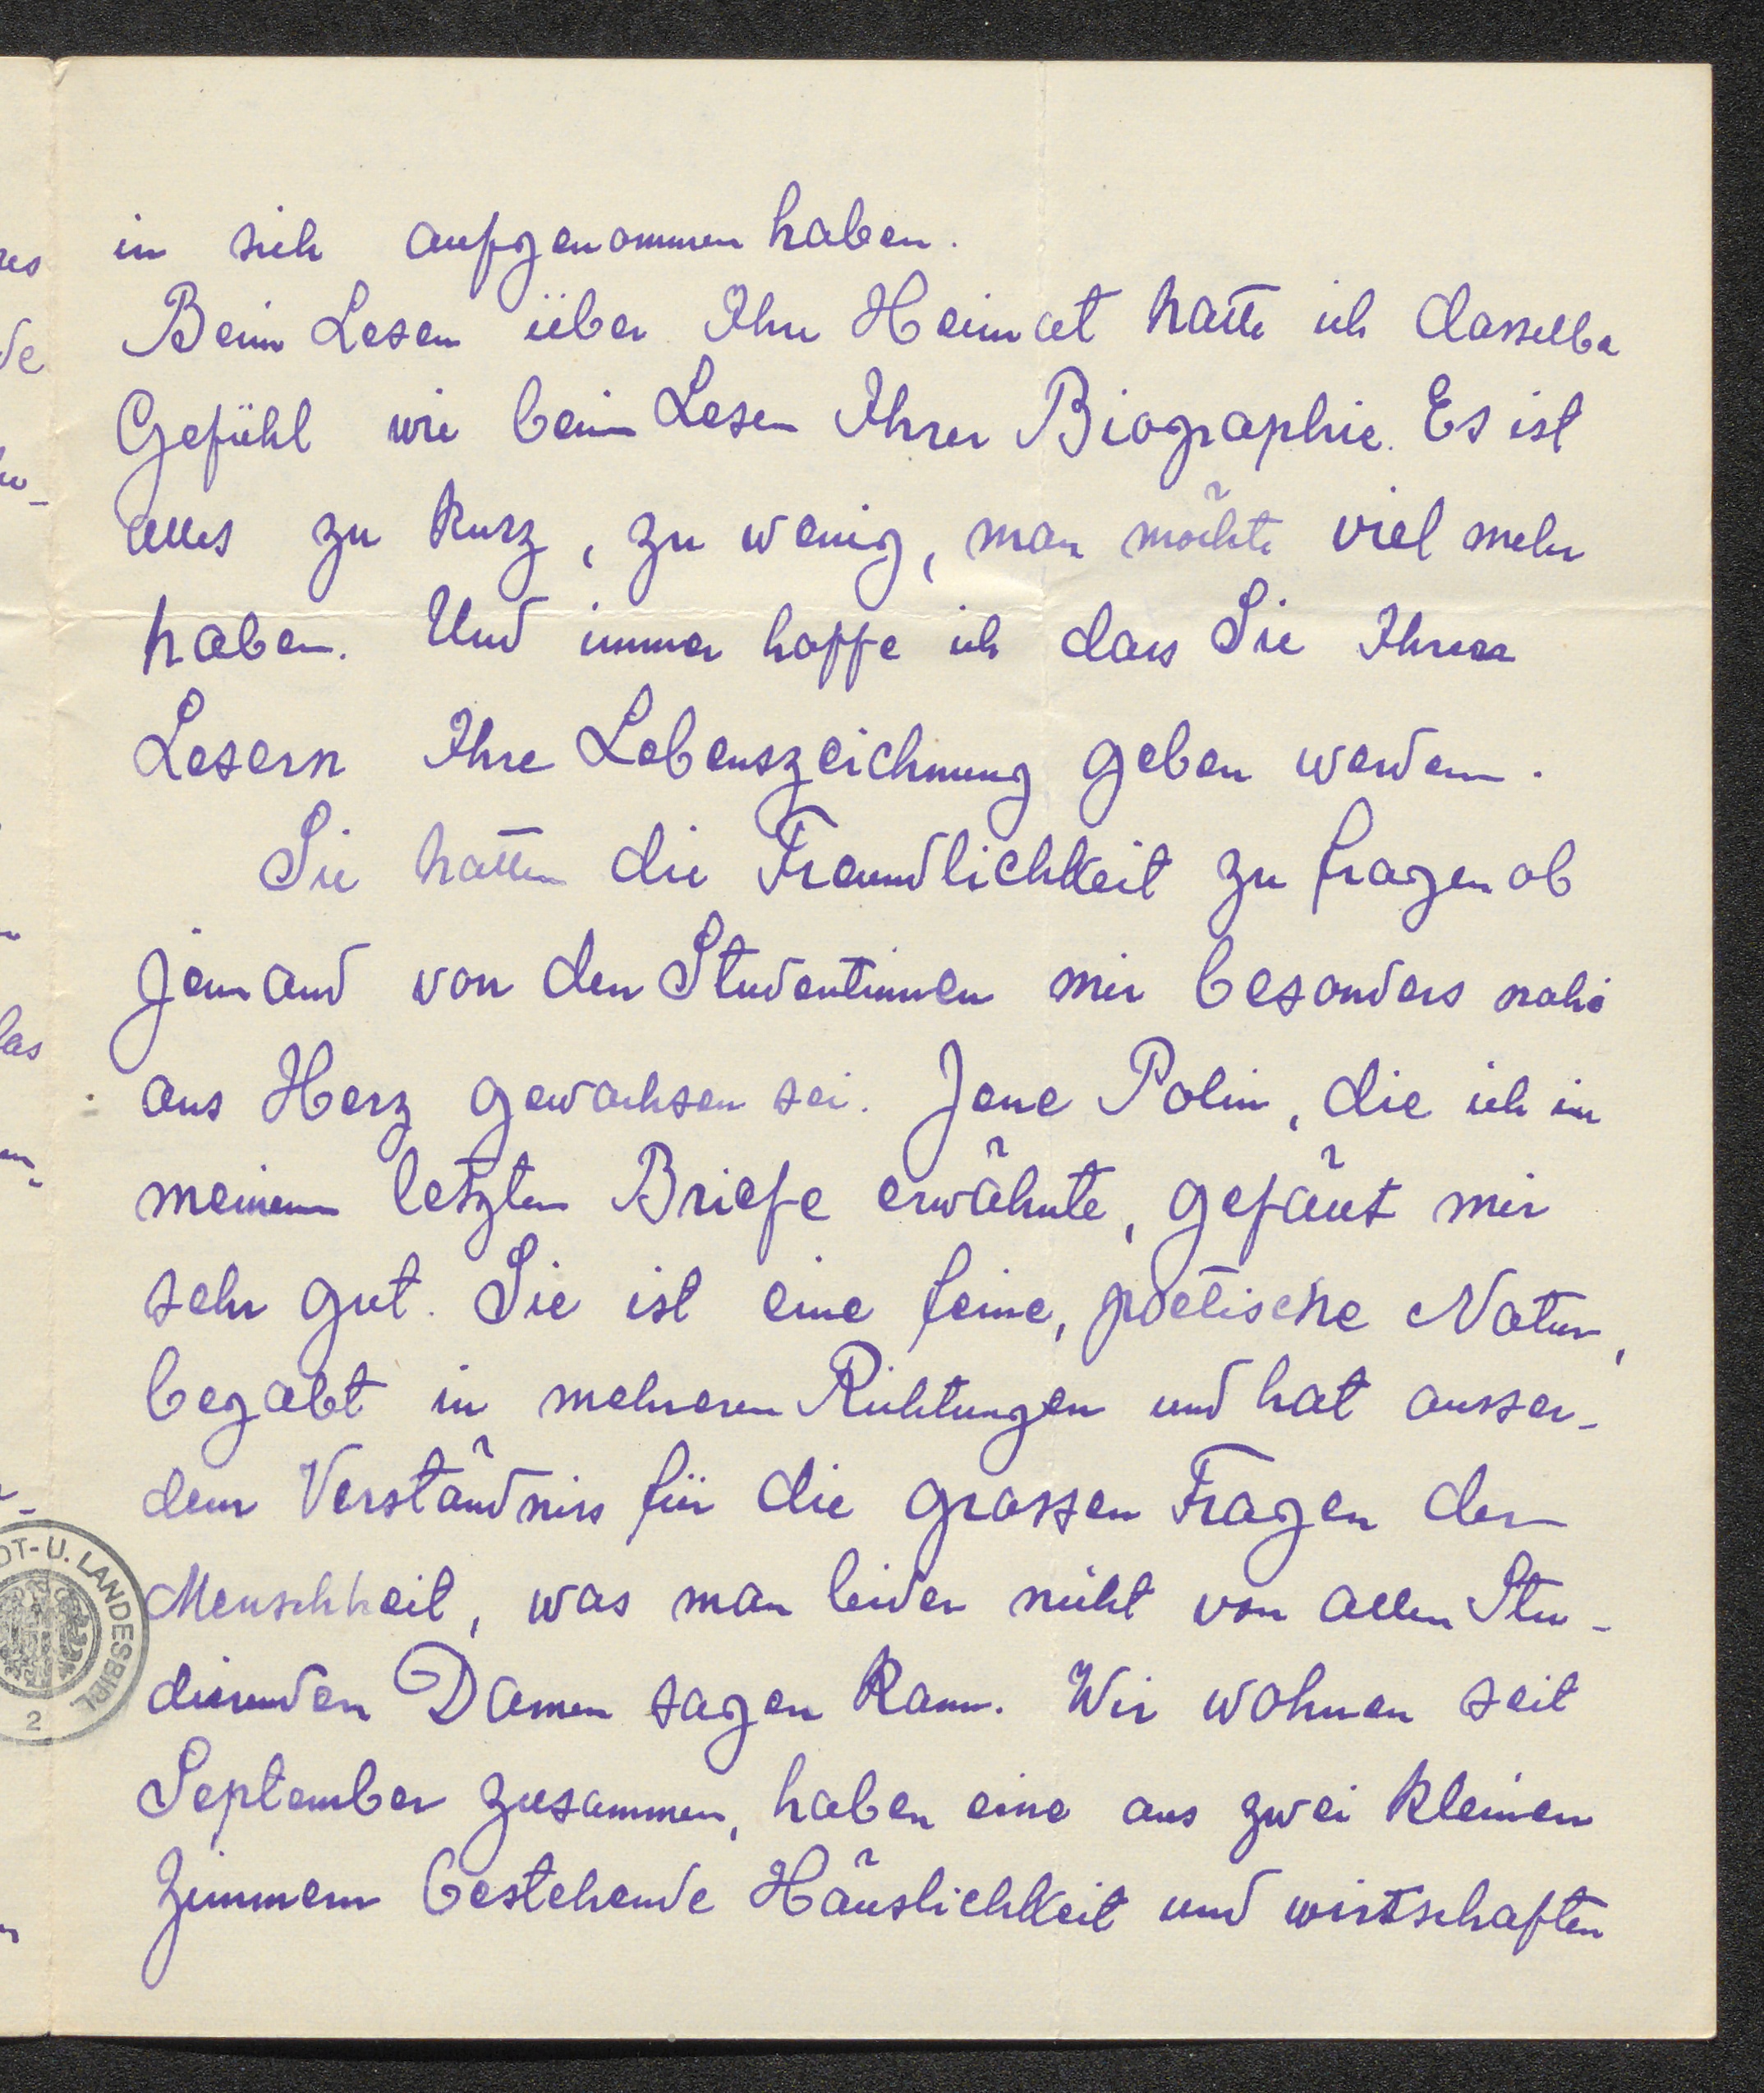 in sich aufgenommen haben.
Beim Lesen über Ihre Heimat hatte ich dasselbe
Gefühl wie beim Lesen Ihrer Biographie. Es ist
alles zu kurz, zu wenig, man möchte viel mehr
haben. Und immer hoffe ich dass Sie Ihren
Lesern Ihre Lebenszeichnung geben werden.
Sie hatten die Freundlichkeit zu fragen ob
jemand von den Studentinnen mir besonders nahe
ans Herz gewachsen sei. Jene Polin, die ich in
meinem letzten Briefe erwähnte, gefällt mir
sehr gut. Sie ist eine feine, poetische Natur,
begabt in mehreren Richtungen und hat ausser-
dem Verständniss für die grossen Fragen der
Menschheit, was man leider nicht von allen Stu-
dierenden Damen sagen kann. Wir wohnen seit
September zusammen, haben eine aus zwei kleinen
Zimmern bestehende Häuslichkeit und wirtschaften
DT- U. LANDESBIBL
2